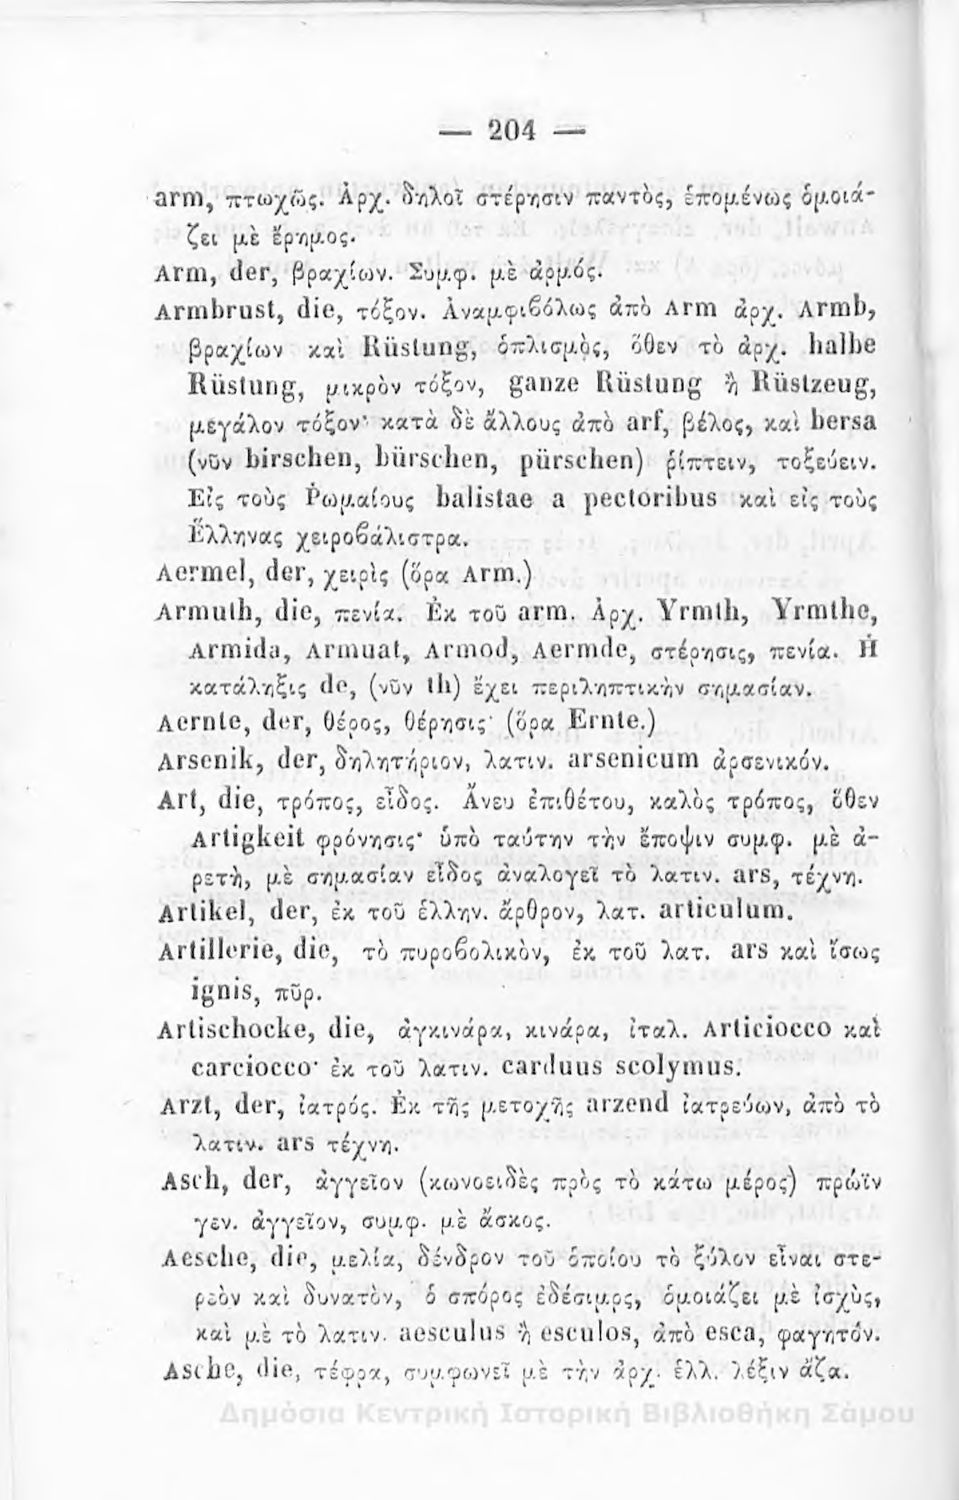 — 204 —
arm, πτωχῶς. Ἀρχ. δηλοῖ στέρησιν παντὸς, ἑπομένως ὁμοιά-
ζει μὲ ἔρημος.
Arm, der, βραχίων. Συμφ. μὲ ἁρμός.
Armbrust, die, τόξον. Ἀναμφιβόλως ἀπὸ Arm ἀρχ. Armb,
βραχίων καὶ Rüstung, ὁπλισμὸς, ὅθεν τὸ ἀρχ. halbe
Rüstung, μικρὸν τόξον, ganze Rüstung ἢ Rüstzeug,
μεγάλον τόξον· κατὰ δὲ ἄλλους ἀπὸ arf, βέλος, καὶ bersa
(νῦν birschen, bürschen, pürschen) ῥίπτειν, τοξεύειν.
Εἰς τοὺς Ῥωμαίους balistae a pectoribus καὶ εἰς τοὺς
Ἕλληνας χειροβάλιστρα.
Aermel, der, χειρὶς (ὅρα Arm.)
Armuth, die, πενία. Ἐκ τοῦ arm. Ἀρχ. Yrmth, Yrmthe,
Armida, Armuat, Armod, Aermde, στέρησις, πενία. Ἡ
κατάληξις de, (νῦν th) ἔχει περιληπτικὴν σημασίαν.
Aernte, der, θέρος, θέρησις· (ὅρα Ernte.)
Arsenik, der, δηλητήριον, λατιν. arsenicum ἀρσενικόν.
Art, die, τρόπος, εἶδος. Ἄνευ ἐπιθέτου, καλὸς τρόπος, ὅθεν
Artigkeit φρόνησις· ὑπὸ ταύτην τὴν ἔποψιν συμφ. μὲ ἀ-
ρετὴ, μὲ σημασίαν εἶδος ἀναλογεῖ τὸ λατιν. ars, τέχνη.
Artikel, der, ἐκ τοῦ ἑλλην. ἄρθρον, λατ. articulum.
Artillerie, die, τὸ πυροβολικὸν, ἐκ τοῦ λατ. ars καὶ ἴσως
ignis, πῦρ.
Artischocke, die, ἀγκινάρα, κινάρα, ἰταλ. Articiocco καὶ
carciocco· ἐκ τοῦ λατιν. carduus scolymus.
Arzt, der, ἰατρός. Ἐκ τῆς μετοχῆς arzend ἰατρεύων, ἀπὸ τὸ
λατιν. ars τέχνη.
Asch, der, ἀγγεῖον (κωνοειδὲς πρὸς τὸ κάτω μέρος) πρώϊν
γεν. ἀγγεῖον, συμφ. μὲ ἄσκος.
Aesche, die, μελία, δένδρον τοῦ ὁποίου τὸ ξύλον εἶναι στε-
ρεὸν καὶ δυνατὸν, ὁ σπόρος ἐδέσιμος, ὁμοιάζει μὲ ἰσχὺς,
καὶ μὲ τὸ λατιν. aesculus ἢ esculos, ἀπὸ esca, φαγητόν.
Asche, die, τέφρα, συμφωνεῖ μὲ τὴν ἀρχ. ἑλλ. λέξιν ἄζα.
Δημόσια Κεντρική Ιστορική Βιβλιοθήκη Σάμου